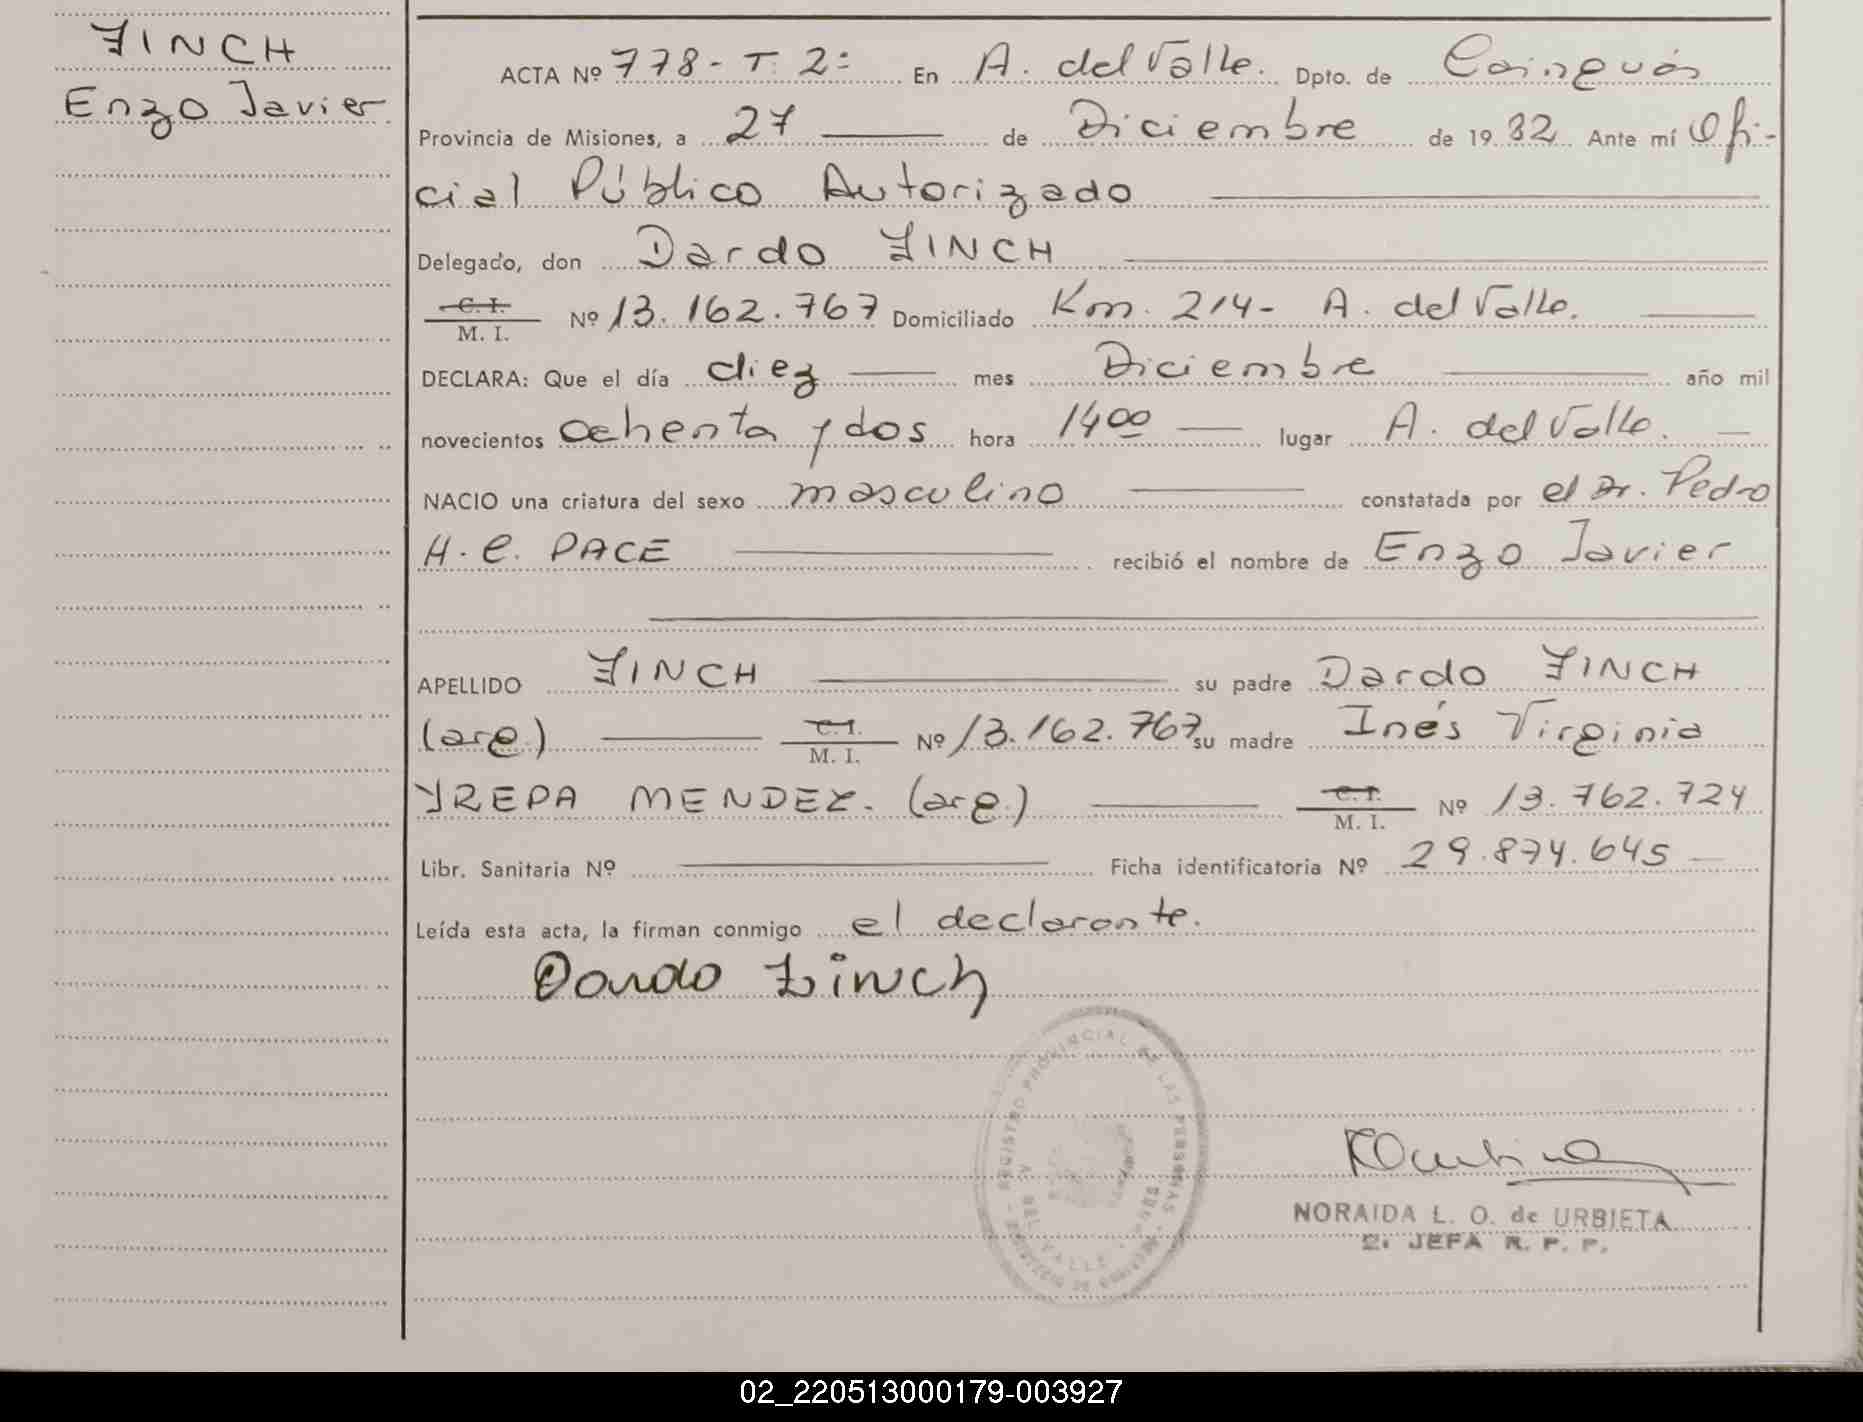 ZINCH
Enzo Javier
ACTA Nº 778 - T. 2º En A. del Valle. Dpto. de Cainguás
Provincia de Misiones, a 27 de Diciembre de 1982 Ante mí Ofi-
cial Público Autorizado
Delegado, don Dardo ZINCH
C. I.
M. I. Nº 13.162.767 Domiciliado Km. 214 - A. del Valle.
DECLARA: Que el día diez mes Diciembre año mil
novecientos ochenta y dos hora 14 00 lugar A. del Valle.
NACIO una criatura del sexo masculino constatada por el Dr. Pedro
H. C. PACE recibió el nombre de Enzo Javier
APELLIDO ZINCH su padre Dardo ZINCH
(arg.) C. I. M. I. Nº 13.162.767 su madre Inés Virginia
YREPA MENDEZ. (arg.) C. I. M. I. Nº 13.762.724
Libr. Sanitaria Nº Ficha identificatoria Nº 29.874.645
Leída esta acta, la firman conmigo el declarante.
Dardo Zinch
REGISTRO PROVINCIAL DE LAS PERSONAS
DEL VALLE
NORAIDA L. O. de URBIETA
JEFA R. P. P.
02_220513000179-003927